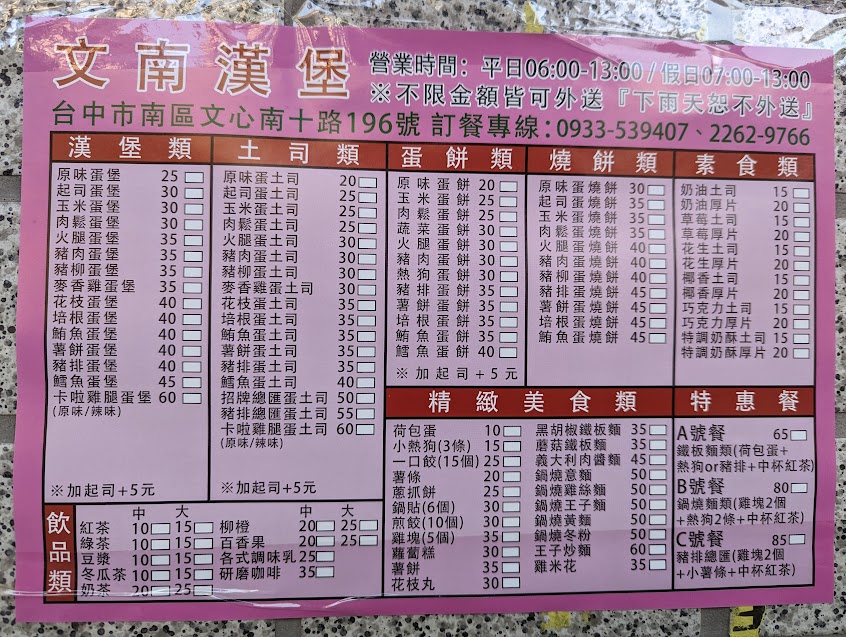 文南漢堡
營業時間：平日06:00-13:00 / 假日07:00-13:00
※不限金額皆可外送『下雨天恕不外送』
台中市南區文心南十路196號 訂餐專線：0933-539407、2262-9766
漢堡類
原味蛋堡 25
起司蛋堡 30
玉米蛋堡 30
肉鬆蛋堡 30
火腿蛋堡 35
豬肉蛋堡 35
豬柳蛋堡 35
麥香雞蛋堡 35
花枝蛋堡 40
培根蛋堡 40
鮪魚蛋堡 40
薯餅蛋堡 40
豬排蛋堡 40
鱈魚蛋堡 45
卡啦雞腿蛋堡 60
(原味/辣味)
※加起司+5元
土司類
原味蛋土司 20
起司蛋土司 25
玉米蛋土司 25
肉鬆蛋土司 25
火腿蛋土司 30
豬肉蛋土司 30
豬柳蛋土司 30
麥香雞蛋土司 30
花枝蛋土司 35
培根蛋土司 35
鮪魚蛋土司 35
薯餅蛋土司 35
豬排蛋土司 35
鱈魚蛋土司 40
招牌總匯蛋土司 50
豬排總匯蛋土司 55
卡啦雞腿蛋土司 60
(原味/辣味)
※加起司+5元
蛋餅類
原味蛋餅 20
玉米蛋餅 25
肉鬆蛋餅 25
蔬菜蛋餅 30
火腿蛋餅 30
豬肉蛋餅 30
熱狗蛋餅 30
豬排蛋餅 35
薯餅蛋餅 35
培根蛋餅 35
鮪魚蛋餅 35
鱈魚蛋餅 40
※加起司+5元
燒餅類
原味蛋燒餅 30
起司蛋燒餅 35
玉米蛋燒餅 35
肉鬆蛋燒餅 35
火腿蛋燒餅 40
豬肉蛋燒餅 40
豬柳蛋燒餅 40
豬排蛋燒餅 45
薯餅蛋燒餅 45
培根蛋燒餅 45
鮪魚蛋燒餅 45
素食類
奶油土司 15
奶油厚片 20
草莓土司 15
草莓厚片 20
花生土司 15
花生厚片 20
椰香土司 15
椰香厚片 20
巧克力土司 15
巧克力厚片 20
特調奶酥土司 15
特調奶酥厚片 20
精緻美食類
荷包蛋 10
小熱狗(3條) 15
一口餃(15個) 25
薯條 20
蔥抓餅 25
鍋貼(6個) 30
煎餃(10個) 30
雞塊(5個) 35
蘿蔔糕 30
薯餅 35
花枝丸 30
黑胡椒鐵板麵 35
蘑菇鐵板麵 35
義大利肉醬麵 45
鍋燒意麵 50
鍋燒雞絲麵 50
鍋燒王子麵 50
鍋燒黃麵 50
鍋燒冬粉 50
王子炒麵 60
雞米花 35
特惠餐
A號餐 65
鐵板麵類(荷包蛋+
熱狗or豬排+中杯紅茶)
B號餐 80
鍋燒麵類(雞塊2個
+熱狗2條+中杯紅茶)
C號餐 85
豬排總匯(雞塊2個
+小薯條+中杯紅茶)
飲品類
中 大
紅茶 10 15
綠茶 10 15
豆漿 10 15
冬瓜茶 10 15
奶茶 20 25
中 大
柳橙 20 25
百香果 20 25
各式調味乳 25
研磨咖啡 35